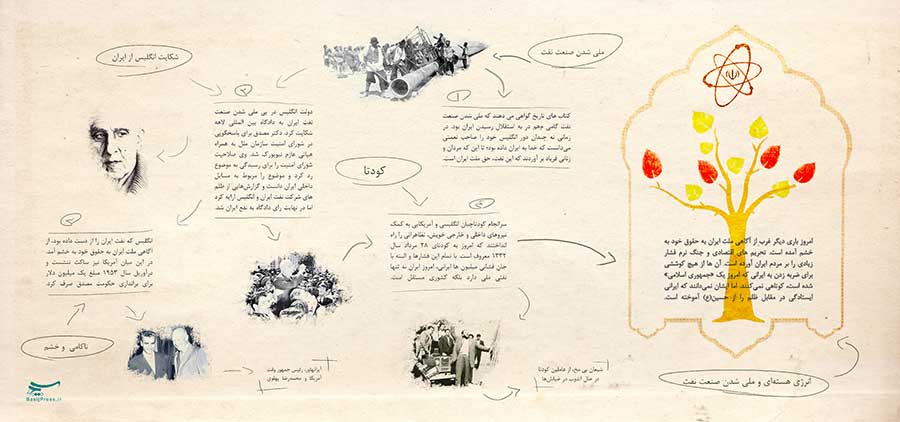 ملی شدن صنعت نفت
۱
کتاب های تاریخ گواهی می دهند که ملی شدن صنعت
نفت گامی مهم در به استقلال رسیدن ایران بود. در
زمانی نه چندان دور انگلیس خود را صاحب نعمتی
می‌دانست که خدا به ایران داده بود؛ تا این که مردان و
زنانی فریاد بر آوردند که این نفت، حق ملت ایران است.
شکایت انگلیس از ایران
۲
دولت انگلیس در پی ملی شدن صنعت
نفت ایران به دادگاه بین المللی لاهه
شکایت کرد. دکتر مصدق برای پاسخگویی
در شورای امنیت سازمان ملل به همراه
هیاتی عازم نیویورک شد. وی صلاحیت
شورای امنیت را برای رسیدگی به موضوع
رد کرد و موضوع را مربوط به مسایل
داخلی ایران دانست و گزارش‌هایی از ظلم
های شرکت نفت ایران و انگلیس ارایه کرد
اما در نهایت رای دادگاه به نفع ایران شد.
۳
انگلیس که نفت ایران را از دست داده بود، از
آگاهی ملت ایران به حقوق خود به خشم آمد.
در این میان آمریکا نیز ساکت ننشست و
درآوریل سال ۱۹۵۳ مبلغ یک میلیون دلار
برای براندازی حکومت مصدق صرف کرد
ناکامی و خشم
آیزنهاور، رئیس جمهور وقت
آمریکا و محمدرضا پهلوی
کودتا
سرانجام کودتاچیان انگلیسی و آمریکایی به کمک
نیروهای داخلی و خارجی خویش، تظاهراتی را راه
انداختند که امروز به کودتای ۲۸ مرداد سال
۱۳۳۲ معروف است. با تمام این فشارها و البته با
جان فشانی میلیون ها ایرانی، امروز ایران نه تنها
نفتی ملی دارد بلکه کشوری مستقل است.
شعبان بی مخ، از عاملین کودتا
در حال آشوب در خیابان‌ها
امروز باری دیگر غرب از آگاهی ملت ایران به حقوق خود به
خشم آمده است. تحریم های اقتصادی و جنگ نرم فشار
زیادی را بر مردم ایران آورده است. آن ها از هیچ کوششی
برای ضربه زدن به ایرانی که امروز یک «جمهوری اسلامی»
شده است، کوتاهی نمی‌کنند. اما ایشان نمی‌دانند که ایرانی
ایستادگی در مقابل ظلم را از حسین(ع) آموخته است.
انرژی هسته‌ای و ملی شدن صنعت نفت
بسیج
BasijPress.ir